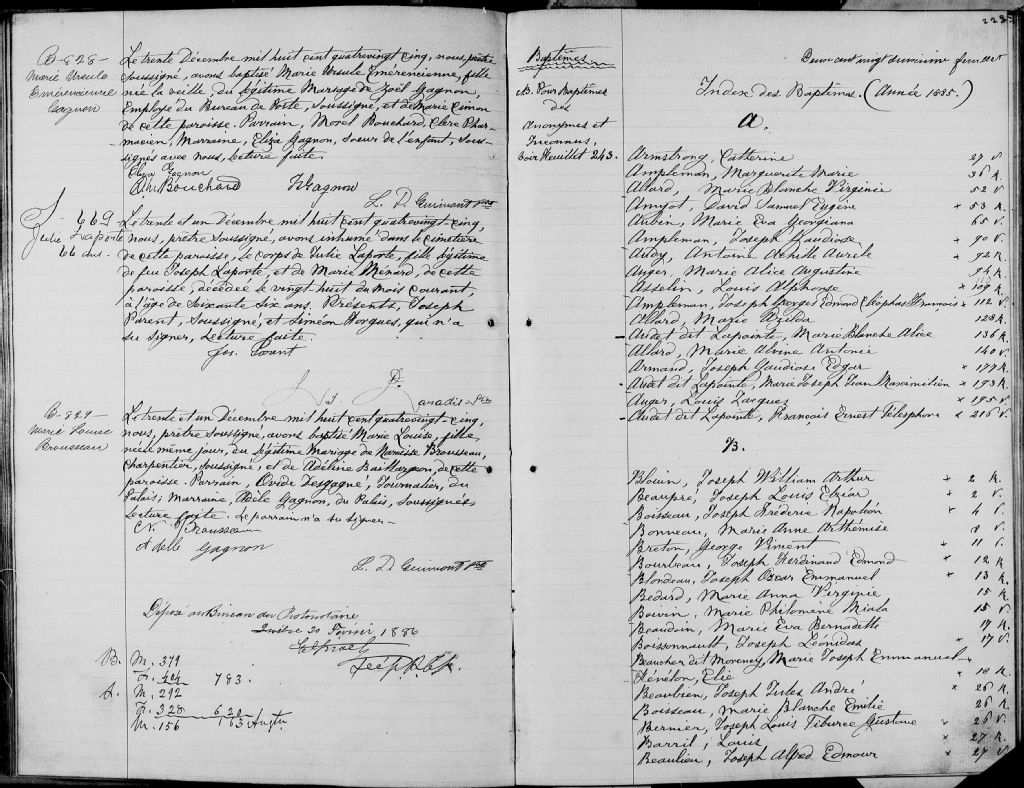 B-828-
Marie Ursule
Emérencienne
Gagnon
Le trente Décembre mil huit cent quatrevingt cinq, nous, prêtre
soussigné, avons baptisé Marie Ursule Emerencienne, fille
née la veille, du légitime Mariage de Zoël Gagnon,
Employé du Bureau de Poste, soussigné, et de Marie Simon
de cette paroisse. Parrain, Morel Bouchard, Clerc Phar-
-macien, Marraine, Eliza Gagnon, soeur de l'enfant, sous-
signés avec nous, lecture faite.
Eliza Gagnon
Bouchard ZGagnon
L. D. Guimont ptre
S- 669
Julie Laporte
66 ans.
Le trente et un Décembre mil huit cent quatrevingt-cinq,
nous, prêtre soussigné, avons inhumé dans le cimetière
de cette paroisse, le corps de Julie Laporte, fille légitime
de feu Joseph Laporte, et de Marie Ménard, de cette
paroisse, décédée le vingt-huit du mois courant,
à l'âge de soixante six ans. Présents, Joseph
Parent, soussigné, et Siméon Horgues, qui n'a
su signer, Lecture faite.
Jos. Parent
Paradis ptre
B-829-
Marie Louise
Brousseau
Le trente et un Décembre mil huit cent quatrevingt-cinq,
nous, prêtre soussigné, avons baptisé Marie Louise, fille
née le même jour, du légitime Mariage de Narcisse Brousseau,
Charpentier, soussigné, et de Adéline Baillargeon, de cette
paroisse. Parrain, Ovide Desgagné, Journalier, du
Palais; Marraine, Adèle Gagnon, du Palais, soussignés
Lecture faite. Le parrain n'a su signer-
N. Brousseau
Adelle Gagnon
L. D. Guimont ptre
Déposé au Bureau du Protonotaire
Québec 30 Février 1886
B. M. 379
F. 404 783.
S. M. 292
F. 328 620
M. 156 163
223
Baptêmes
N.B. Pour Baptêmes
des
Anonymes et
Inconnus,
Voir Feuillet 243.
Deux cent vingt deuxième feuillet
Index des Baptêmes. (Année 1885.)
A.
Armstrong, Catherine 27 V.
Ampleman, Marguerite Marie 36 R.
Allard, Marie Blanche Virginie 52 V
Amyot, David Samuel Eugène x 53 R.
Aubin, Marie Eva Georgiana 65 V.
Ampleman, Joseph Gaudiose x 90 V.
Audy, Antoine Achille Aurèle x 92 R.
Auger, Marie Alice Augustine 94 R.
Asselin, Louis Alphonse x 109 R.
Ampleman, Joseph Georges Edmond Cléophas François x 112 V.
Allard, Marie 123 R.
Audet dit Lapointe, Marie Blanche Alice 136 R.
Allard, Marie Alvine Antonie 140 V.
Armand, Joseph Gaudiose Edgar x 177 R.
Audet dit Lapointe, Marie Joseph Jean Maximilien x 193 R.
Auger, Louis Jacques x 195 V.
Audet dit Lapointe, François Ernest Télesphore x 216 V.
B.
Blouin, Joseph William Arthur x 2 R.
Beaupré, Joseph Louis Elzéar x 2 V.
Boisseau, Joseph Fréderic Napoléon x 4 V.
Bonneau, Marie Anne Arthémise 8 V.
Breton, George Vincent x 11 V.
Bourbeau, Joseph Ferdinand Edmond x 12 R.
Blondeau, Joseph Oscar Emmanuel x 13 R.
Bedard, Marie Anna Virginie 15 R.
Boivin, Marie Philomène 15 V.
Beaudoin, Marie Eva Bernadette 17 R.
Boissonnault, Joseph Léonidas x 17 V
Beaucher dit Morency, Marie Joseph Emmanuel x
Elie x 18 R.
Beaubien, Joseph Jules André x 26 R.
Boisseau, Marie Blanche Emilie 26 R.
Bernier, Joseph Louis Tiburce Gustave x 26 V.
Barril, Louis x 27 R.
Beaulieu, Joseph Alfred Edmour x 27 V.